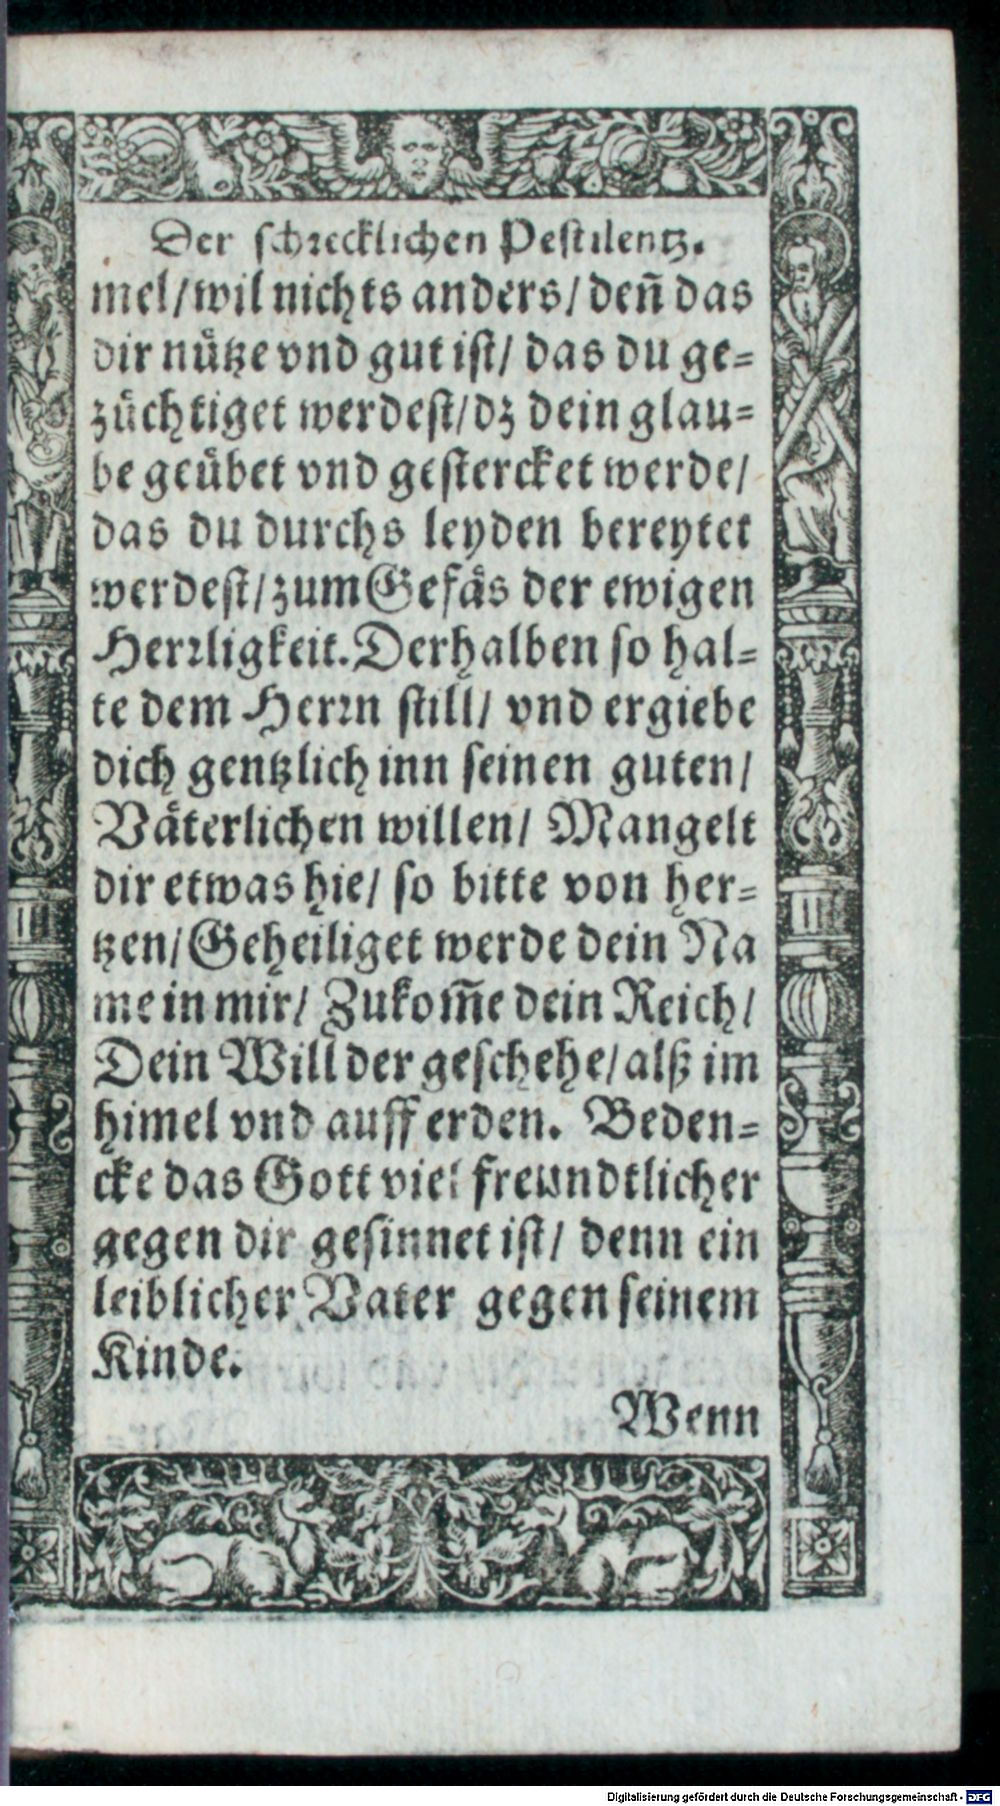 Der schrecklichen Pestilentz.
mel/wil nichts anders/ deñ das
dir nütze vnd gut ist/ das du ge=
züchtiget werdest/dz dein glau=
be geübet vnd gestercket werde/
das du durchs leyden bereytet
werdest/zum Gefäs der ewigen
Herrligkeit. Derhalben so hal=
te dem Herrn still/ vnd ergiebe
dich gentzlich inn seinen guten/
Väterlichen willen/ Mangelt
dir etwas hie/ so bitte von her=
tzen/Geheiliget werde dein Na
me in mir/ Zukom̃e dein Reich/
Dein Will der geschehe/alß im
himel vnd auff erden. Beden=
cke das Gott viel freundtlicher
gegen dir gesinnet ist/ denn ein
leiblicher Vater gegen seinem
Kinde.
Wenn
Digitalisierung gefördert durch die Deutsche Forschungsgemeinschaft - DFG